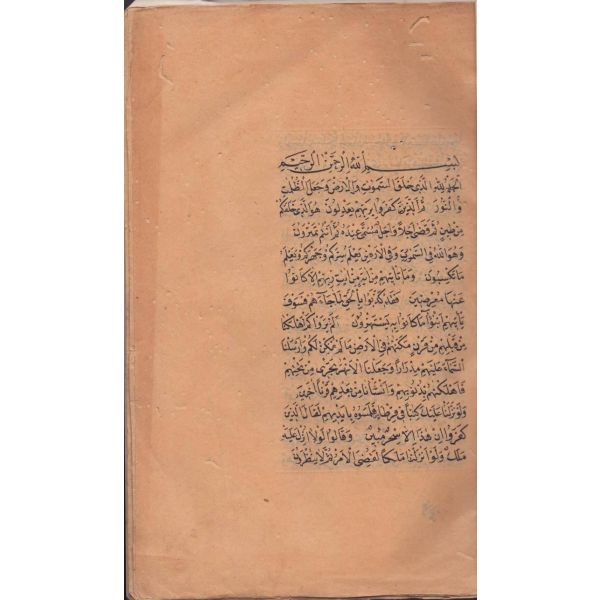 بسم الله الرحمن الرحيم
الحمد لله الذي خلق السموات والارض وجعل الظلمت
والنور ثم الذين كفروا بربهم يعدلون هو الذي خلقكم
من طين ثم قضى اجلا واجل مسمى عنده ثم انتم تمترون
وهو الله في السموات وفي الارض يعلم سركم وجهركم ويعلم
ما تكسبون وما تأتيهم من اية من ايت ربهم الا كانوا
عنها معرضين فقد كذبوا بالحق لما جاءهم فسوف
يأتيهم انبوا ما كانوا به يستهزؤن الم يروا كم اهلكنا
من قبلهم من قرن مكنهم في الارض ما لم نمكن لكم وارسلنا
السماء عليهم مدرارا وجعلنا الانهر تجري من تحتهم
فاهلكنهم بذنوبهم وانشأنا من بعدهم قرنا اخرين
ولو نزلنا عليك كتبا في قرطاس فلمسوه بايديهم لقال الذين
كفروا ان هذا الا سحر مبين وقالوا لولا انزل عليه
ملك ولو انزلنا ملكا لقضي الامر ثم لا ينظرون